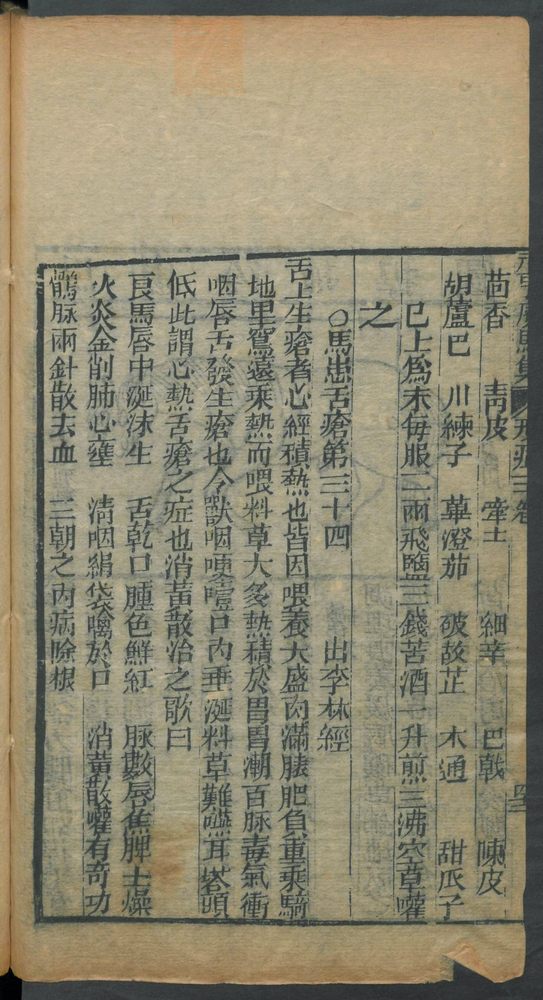 茴香 青皮 牽牛 細辛 巴戟 陳皮
胡蘆巴 川練子 蓽澄茄 破故芷 木通 甜瓜子
已上爲末每服二兩飛鹽三錢苦酒一升煎三沸空草嚾
之
○馬患舌瘡第三十四 出李林經
舌上生瘡者心經積熱也皆因喂養太盛肉滿膘肥負重乘騎
地里窵遠乘熱而喂料草太多熱積於胃胃潮百脉毒氣衝
咽唇舌發生瘡也令獸咽哽噎口内垂涎料草難嚥耳搭頭
低此謂心熱舌瘡之症也消黃散治之歌曰
良馬唇中涎沫生 舌乾口腫色鮮紅 脉數唇焦脾土燥
火炎金削肺心壅 清咽絹袋噙於口 消黃散嚾有奇功
鶻脉兩針散去血 三朝之内病除根